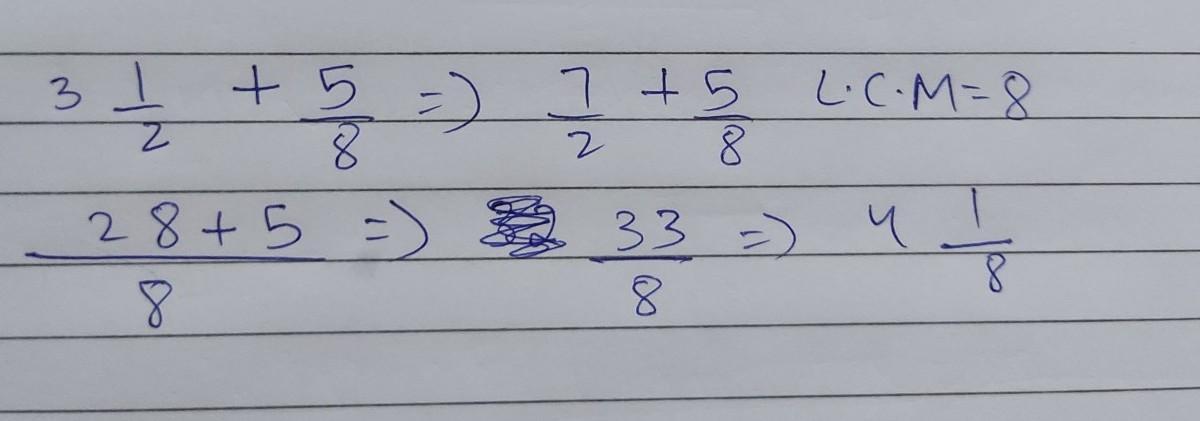 3 1/2 + 5/8 => 7/2 + 5/8 L.C.M = 8
28+5/8 => 33/8 => 4 1/8